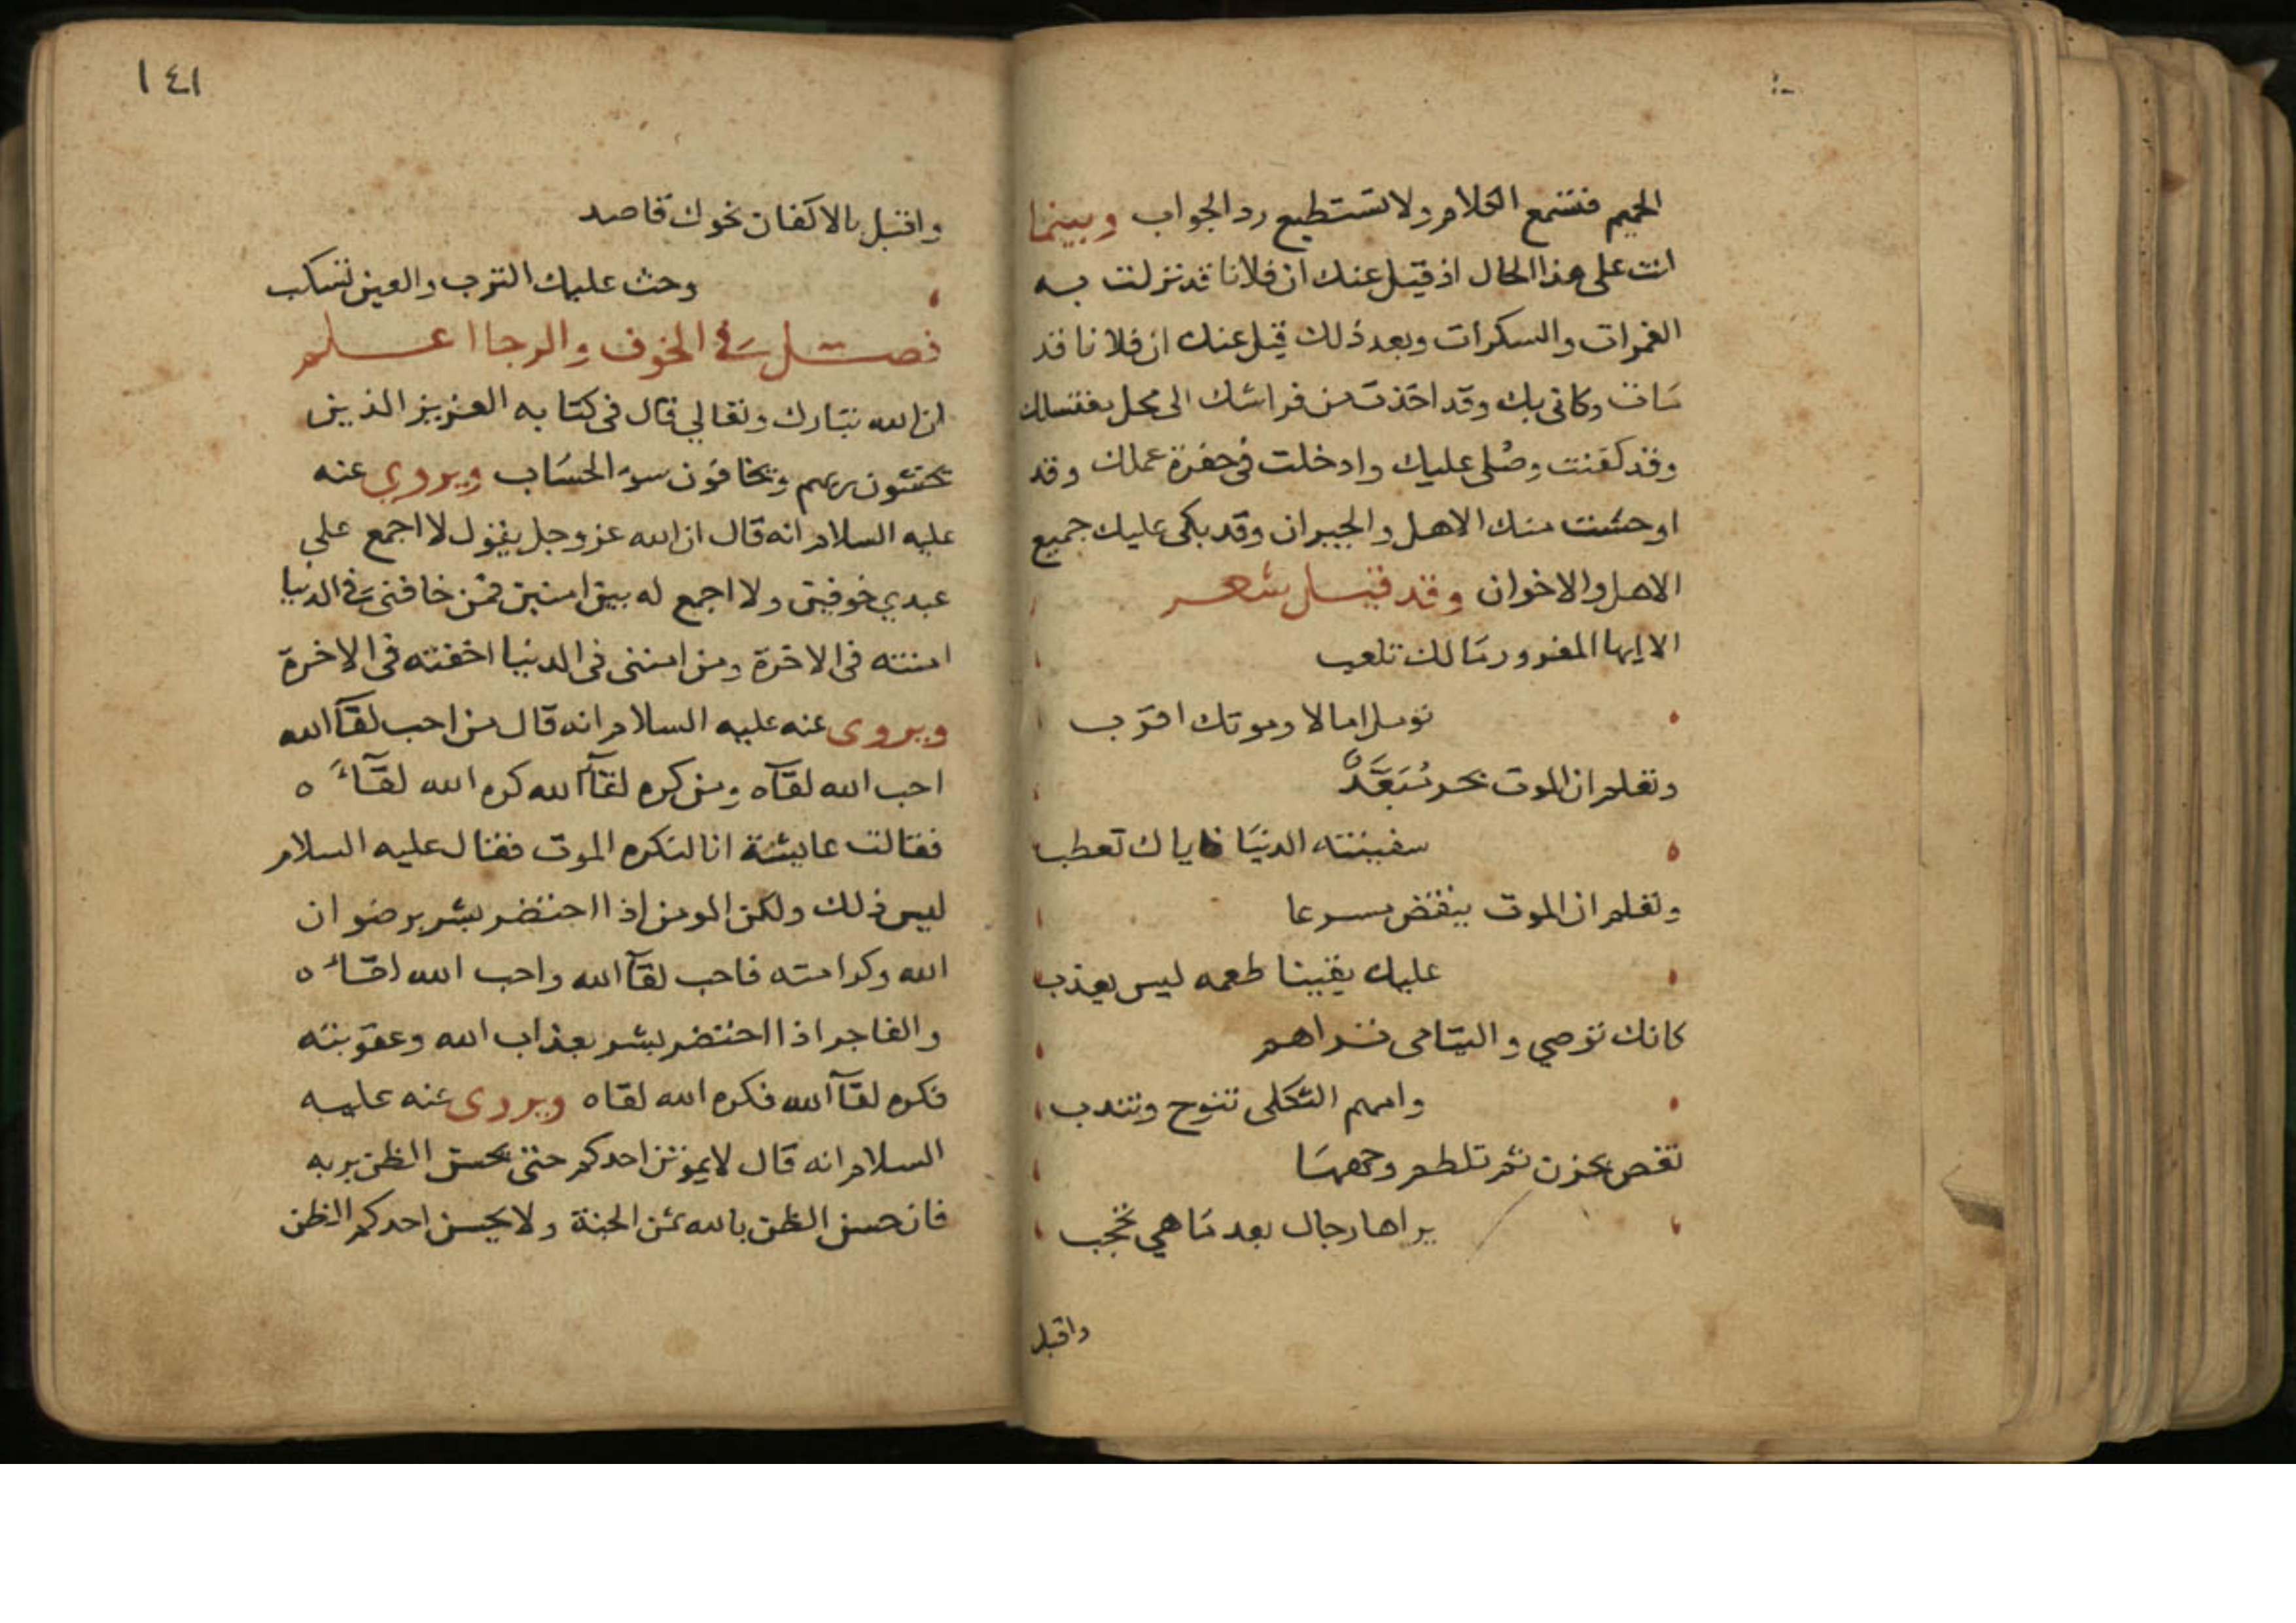 الحميم فتسمع الكلام ولا تستطيع رد الجواب وبينما
انت على هذا الحال اذ قيل عنك ان فلانا قد نزلت به
الغمرات والسكرات وبعد ذلك قيل عنك ان فلانا قد
مات وكاني بك وقد اخذت من فراشك الى محل مغتسلك
وقد كفنت وصلى عليك وادخلت في حفرة عملك وقد
اوحشت منك الاهل والجيران وقد بكى عليك جميع
الاهل والاخوان وقد قيل شعر
الا ايها المغرور مالك تلعب
تومل امالا وموتك اقرب
وتعلم ان الموت بحر مبعد
سفينته الدنيا فاياك تعطب
وتعلم ان الموت ينقض مسرعا
عليك يقينا طعمه ليس يعذب
كانك توصي واليتامى تراهم
وامهم الثكلى تنوح وتندب
تغص بحزن ثم تلطم وجهها
يراها رجال بعد ما هي تحجب
واقبل
١٤١
واقبل بالاكفان نحوك قاصد
وحث عليك الترب والعين تسكب
فصل في الخوف والرجا اعلم
ان الله تبارك وتعالي قال في كتابه العزيز الذين
يخشون ربهم ويخافون سوء الحساب ويروي عنه
عليه السلام انه قال ان الله عز وجل يقول لا اجمع على
عبدي خوفين ولا اجمع له بين امنين فمن خافني في الدنيا
امنته في الاخرة ومن امنني في الدنيا اخفته في الاخرة
ويروى عنه عليه السلام انه قال من احب لقآ الله
احب الله لقآه ومن كره لقآ الله كره الله لقآءه
فقالت عايشة انا لنكره الموت فقال عليه السلام
ليس ذلك ولكن المومن اذا احتضر بشر برضوان
الله وكرامته فاحب لقآ الله واحب الله لقاءه
والفاجر اذا احتضر بشر بعذاب الله وعقوبته
فكره لقآ الله فكره الله لقاه ويروى عنه عليه
السلام انه قال لا يموتن احدكم حتى يحسن الظن بربه
فان حسن الظن بالله ثمن الجنة ولا يحسن احدكم الظن